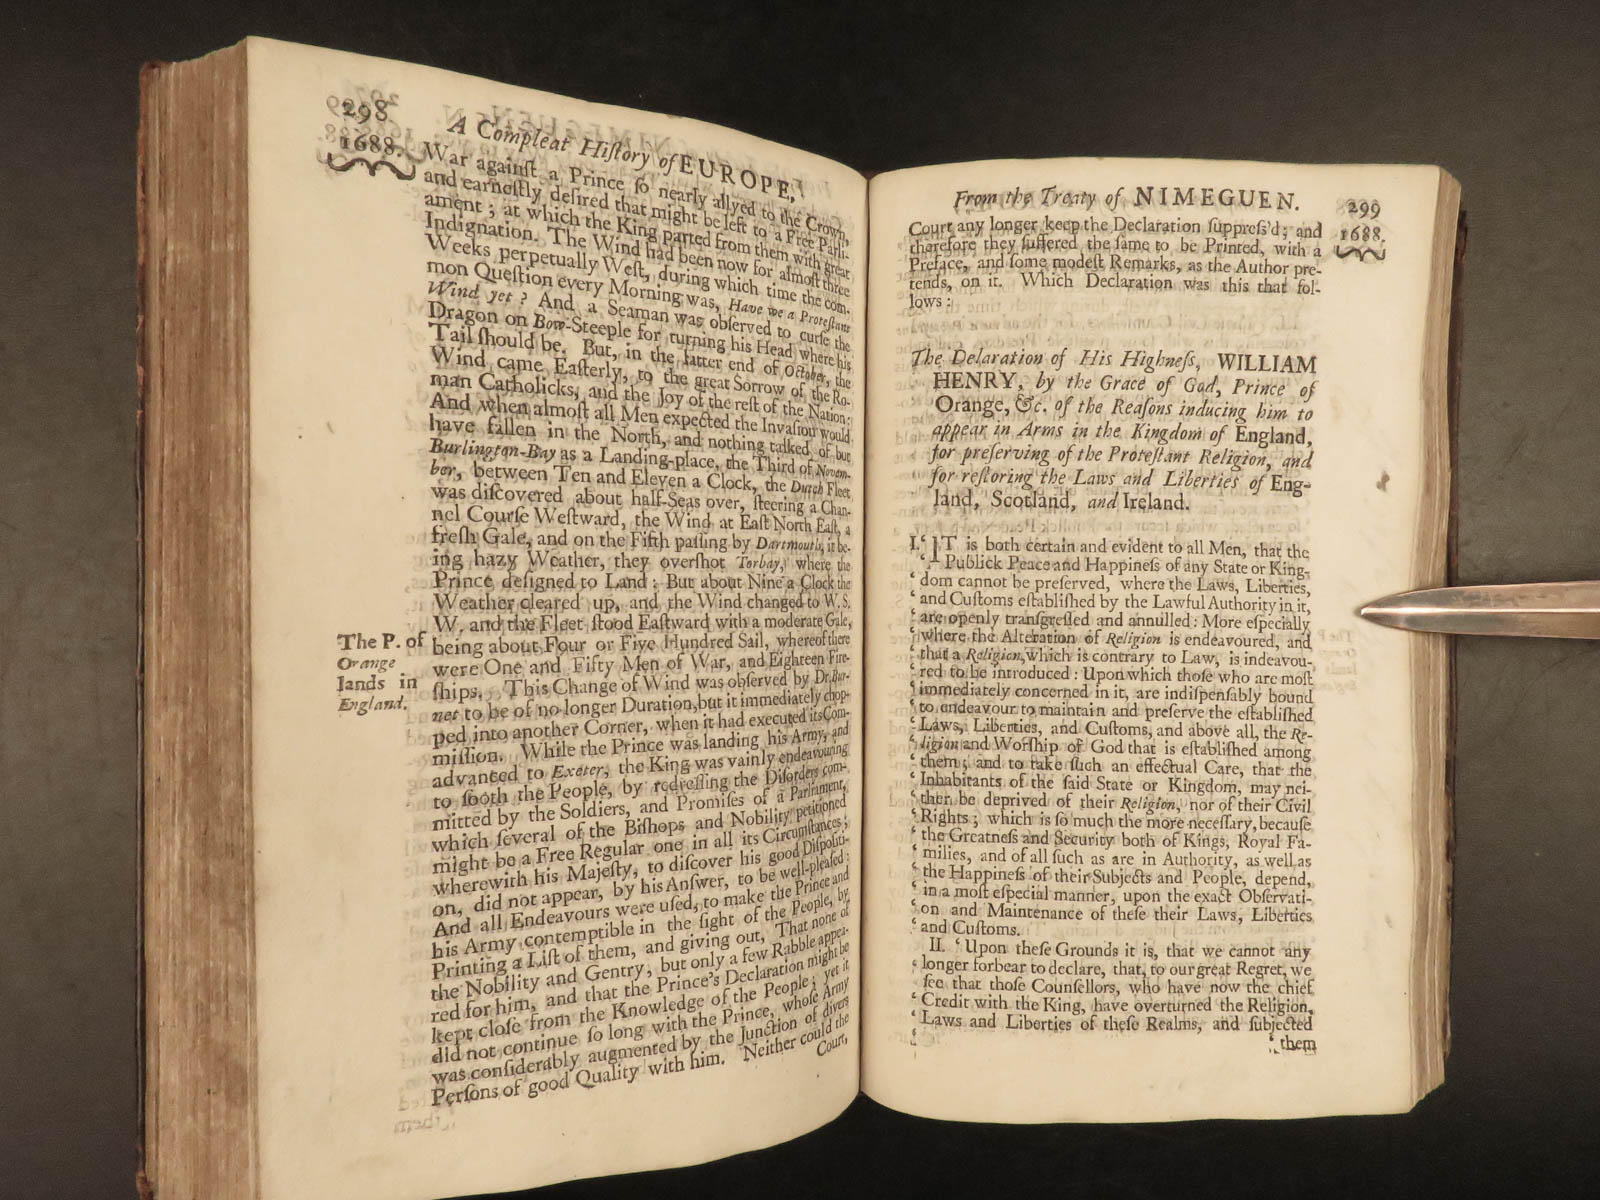 298
1688.
A Compleat Hiſtory of EUROPE,
War againſt a Prince ſo nearly allyed to the Crown,
and earneſtly deſired that might be left to a Free Parli-
ament; at which the King parted from them with great
Indignation. The Wind had been now for almoſt three
Weeks perpetually Weſt, during which time the com-
mon Queſtion every Morning was, Have we a Proteſtant
Wind yet? And a Seaman was obſerved to curſe the
Dragon on Bow-Steeple for turning his Head where his
Tail ſhould be. But, in the latter end of October, the
Wind came Eaſterly, to the great Sorrow of the Ro-
man Catholicks, and the Joy of the reſt of the Nation:
And when almoſt all Men expected the Invaſion would
have fallen in the North, and nothing talked of but
Burlington-Bay as a Landing-place, the Third of Novem-
ber, between Ten and Eleven a Clock, the Dutch Fleet
was diſcovered about half-Seas over, ſteering a Chan-
nel Courſe Weſtward, the Wind at Eaſt North Eaſt, a
freſh Gale, and on the Fifth paſſing by Dartmouth, it be-
ing hazy Weather, they overſhot Torbay, where the
Prince deſigned to Land: But about Nine a Clock the
Weather cleared up, and the Wind changed to W. S.
W. and the Fleet ſtood Eaſtward with a moderate Gale,
The P. of
Orange
lands in
England.
being about Four or Five Hundred Sail, whereof there
were One and Fifty Men of War, and Eighteen Fire-
ſhips. This Change of Wind was obſerved by Dr. Bur-
net to be of no longer Duration, but it immediately chop-
ped into another Corner, when it had executed its Com-
miſſion. While the Prince was landing his Army, and
advanted to Exeter, the King was vainly endeavouring
to ſooth the People, by redreſſing the Diſorders com-
mitted by the Soldiers, and Promiſes of a Parliament,
which ſeveral of the Biſhops and Nobility petitioned
might be a Free Regular one in all its Circumſtances;
wherewith his Majeſty, to diſcover his good Diſpoſiti-
on, did not appear, by his Anſwer, to be well-pleaſed:
And all Endeavours were uſed, to make the Prince and
his Army contemptible in the ſight of the People, by
Printing a Liſt of them, and giving out, That none of
the Nobility and Gentry, but only a few Rabble appea-
red for him, and that the Prince's Declaration might be
kept cloſe from the Knowledge of the People; yet it
did not continue ſo long with the Prince, whoſe Army
was conſiderably augmented by the Junction of divers
Perſons of good Quality with him. Neither could the
Court,
From the Treaty of NIMEGUEN.
299
1688.
Court any longer keep the Declaration ſuppreſs'd; and
therefore they ſuffered the ſame to be Printed, with a
Preface, and ſome modeſt Remarks, as the Author pre-
tends, on it. Which Declaration was this that fol-
lows:
The Delaration of His Highneſs, WILLIAM
HENRY, by the Grace of God, Prince of
Orange, &c. of the Reaſons inducing him to
appear in Arms in the Kingdom of England,
for preſerving of the Proteſtant Religion, and
for reſtoring the Laws and Liberties of Eng-
land, Scotland, and Ireland.
I. ‘IT is both certain and evident to all Men, that the
‘Publick Peace and Happineſs of any State or King-
‘dom cannot be preſerved, where the Laws, Liberties,
‘and Cuſtoms eſtabliſhed by the Lawful Authority in it,
‘are openly tranſgreſſed and annulled: More eſpecially
‘where the Alteration of Religion is endeavoured, and
‘that a Religion, which is contrary to Law, is indeavou-
‘red to be introduced: Upon which thoſe who are moſt
‘immediately concerned in it, are indiſpenſably bound
‘to endeavour to maintain and preſerve the eſtabliſhed
‘Laws, Liberties, and Cuſtoms, and above all, the Re-
‘ligion and Worſhip of God that is eſtabliſhed among
‘them; and to take ſuch an effectual Care, that the
‘Inhabitants of the ſaid State or Kingdom, may nei-
‘ther be deprived of their Religion, nor of their Civil
‘Rights; which is ſo much the more neceſſary, becauſe
‘the Greatneſs and Security both of Kings, Royal Fa-
‘milies, and of all ſuch as are in Authority, as well as
‘the Happineſs of their Subjects and People, depend,
‘in a moſt eſpecial manner, upon the exact Obſervati-
‘on and Maintenance of theſe their Laws, Liberties
‘and Cuſtoms.
II. ‘Upon theſe Grounds it is, that we cannot any
‘longer forbear to declare, that, to our great Regret, we
‘ſee that thoſe Counſellors, who have now the chief
‘Credit with the King, have overturned the Religion,
‘Laws and Liberties of theſe Realms, and ſubjected
‘them